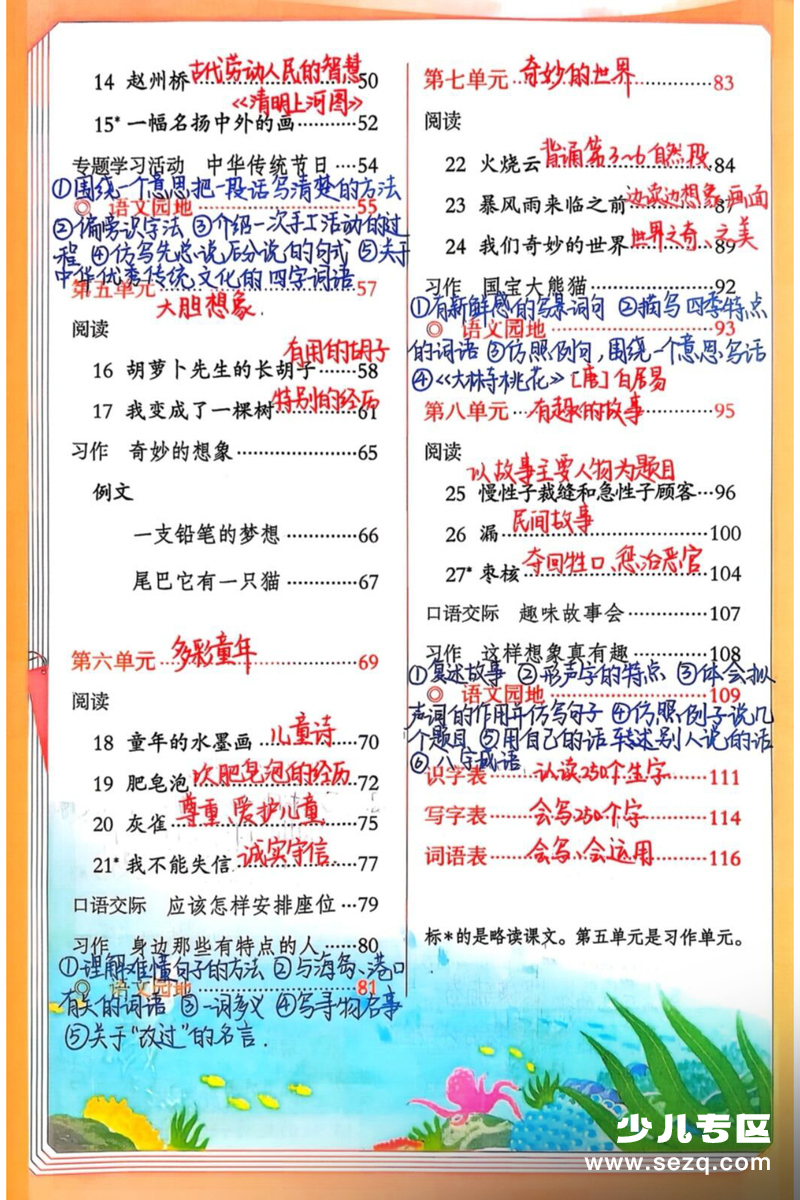 14 赵州桥 古代劳动人民的智慧 50
《清明上河图》
15* 一幅名扬中外的画 52
专题学习活动 中华传统节日 54
①围绕一个意思把一段话写清楚的方法
◎ 语文园地 55
②偏旁识字法 ③介绍一次手工活动的过
程 ④仿写先总说后分说的句式 ⑤关于
中华优秀传统文化的四字词语
第五单元 57
大胆想象
阅读
有用的胡子
16 胡萝卜先生的长胡子 58
17 我变成了一棵树 特别的经历 61
习作 奇妙的想象 65
例文
一支铅笔的梦想 66
尾巴它有一只猫 67
第六单元 多彩童年 69
阅读
18 童年的水墨画 儿童诗 70
19 肥皂泡 吹肥皂泡的经历 72
20 灰雀 尊重、爱护儿童 75
21* 我不能失信 诚实守信 77
口语交际 应该怎样安排座位 79
习作 身边那些有特点的人 80
①理解难懂句子的方法 ②与海岛、港口
◎ 语文园地 81
有关的词语 ③一词多义 ④写寻物启事
⑤关于“改过”的名言.
第七单元 奇妙的世界 83
阅读
22 火烧云 背诵第3~6自然段 84
23 暴风雨来临之前 边读边想象画面 87
24 我们奇妙的世界 世界之奇、之美 89
习作 国宝大熊猫 92
①有新鲜感的写景词句 ②描写四季特点
◎ 语文园地 93
的词语 ③仿照例句,围绕一个意思写话
④《大林寺桃花》[唐]白居易
第八单元 有趣的故事 95
阅读
以故事主要人物为题目
25 慢性子裁缝和急性子顾客 96
26 漏 民间故事 100
27* 枣核 夺回牲口、惩治恶官 104
口语交际 趣味故事会 107
习作 这样想象真有趣 108
①复述故事 ②形声字的特点 ③体会拟
◎ 语文园地 109
声词的作用并仿写句子 ④仿照例子说几
个题目 ⑤用自己的话转述别人说的话
⑥八字成语
识字表 认读250个生字 111
写字表 会写250个字 114
词语表 会写、会运用 116
标*的是略读课文。第五单元是习作单元。
少儿专区
www.sezq.com